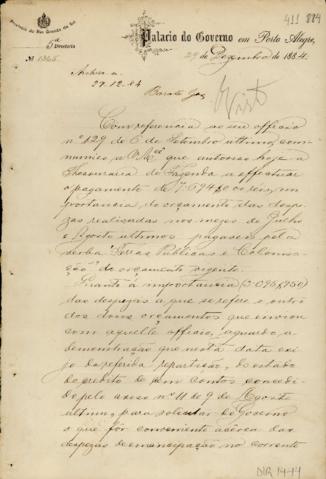 Provincia do Rio Grande do Sul
5ª Directoria
Nº 1365
411 884
Palacio do Governo em Porto Alegre,
29 de Dezembro de 1884.
Archive-se.
29.12.84
Visto
Com referencia ao seu officio
nº 129 de 6 de Setembro ultimo, com-
munico a V.Mcê que autoriso hoje a
Thesouraria de Fazenda a effectuar
o pagamento de reis, im-
portancia do orçamento das despe-
zas realisadas nos mezes de Julho
e Agosto ultimos pagaveis pela
verba "Terras Publicas e Coloni-
sação" do orçamento vigente.
Quanto á importancia
das despezas a que se refere o outro
dos dous orçamentos que enviou
com aquelle officio, aguardo a
demonstração que nesta data exi-
jo da referida repartição, do estado
do credito de cem contos concedi-
do pelo aviso nº 11 de 9 de Agosto
ultimo, para solicitar do Governo
o que fôr conveniente ácerca das
despezas de emancipação no corrente
DIR 1444